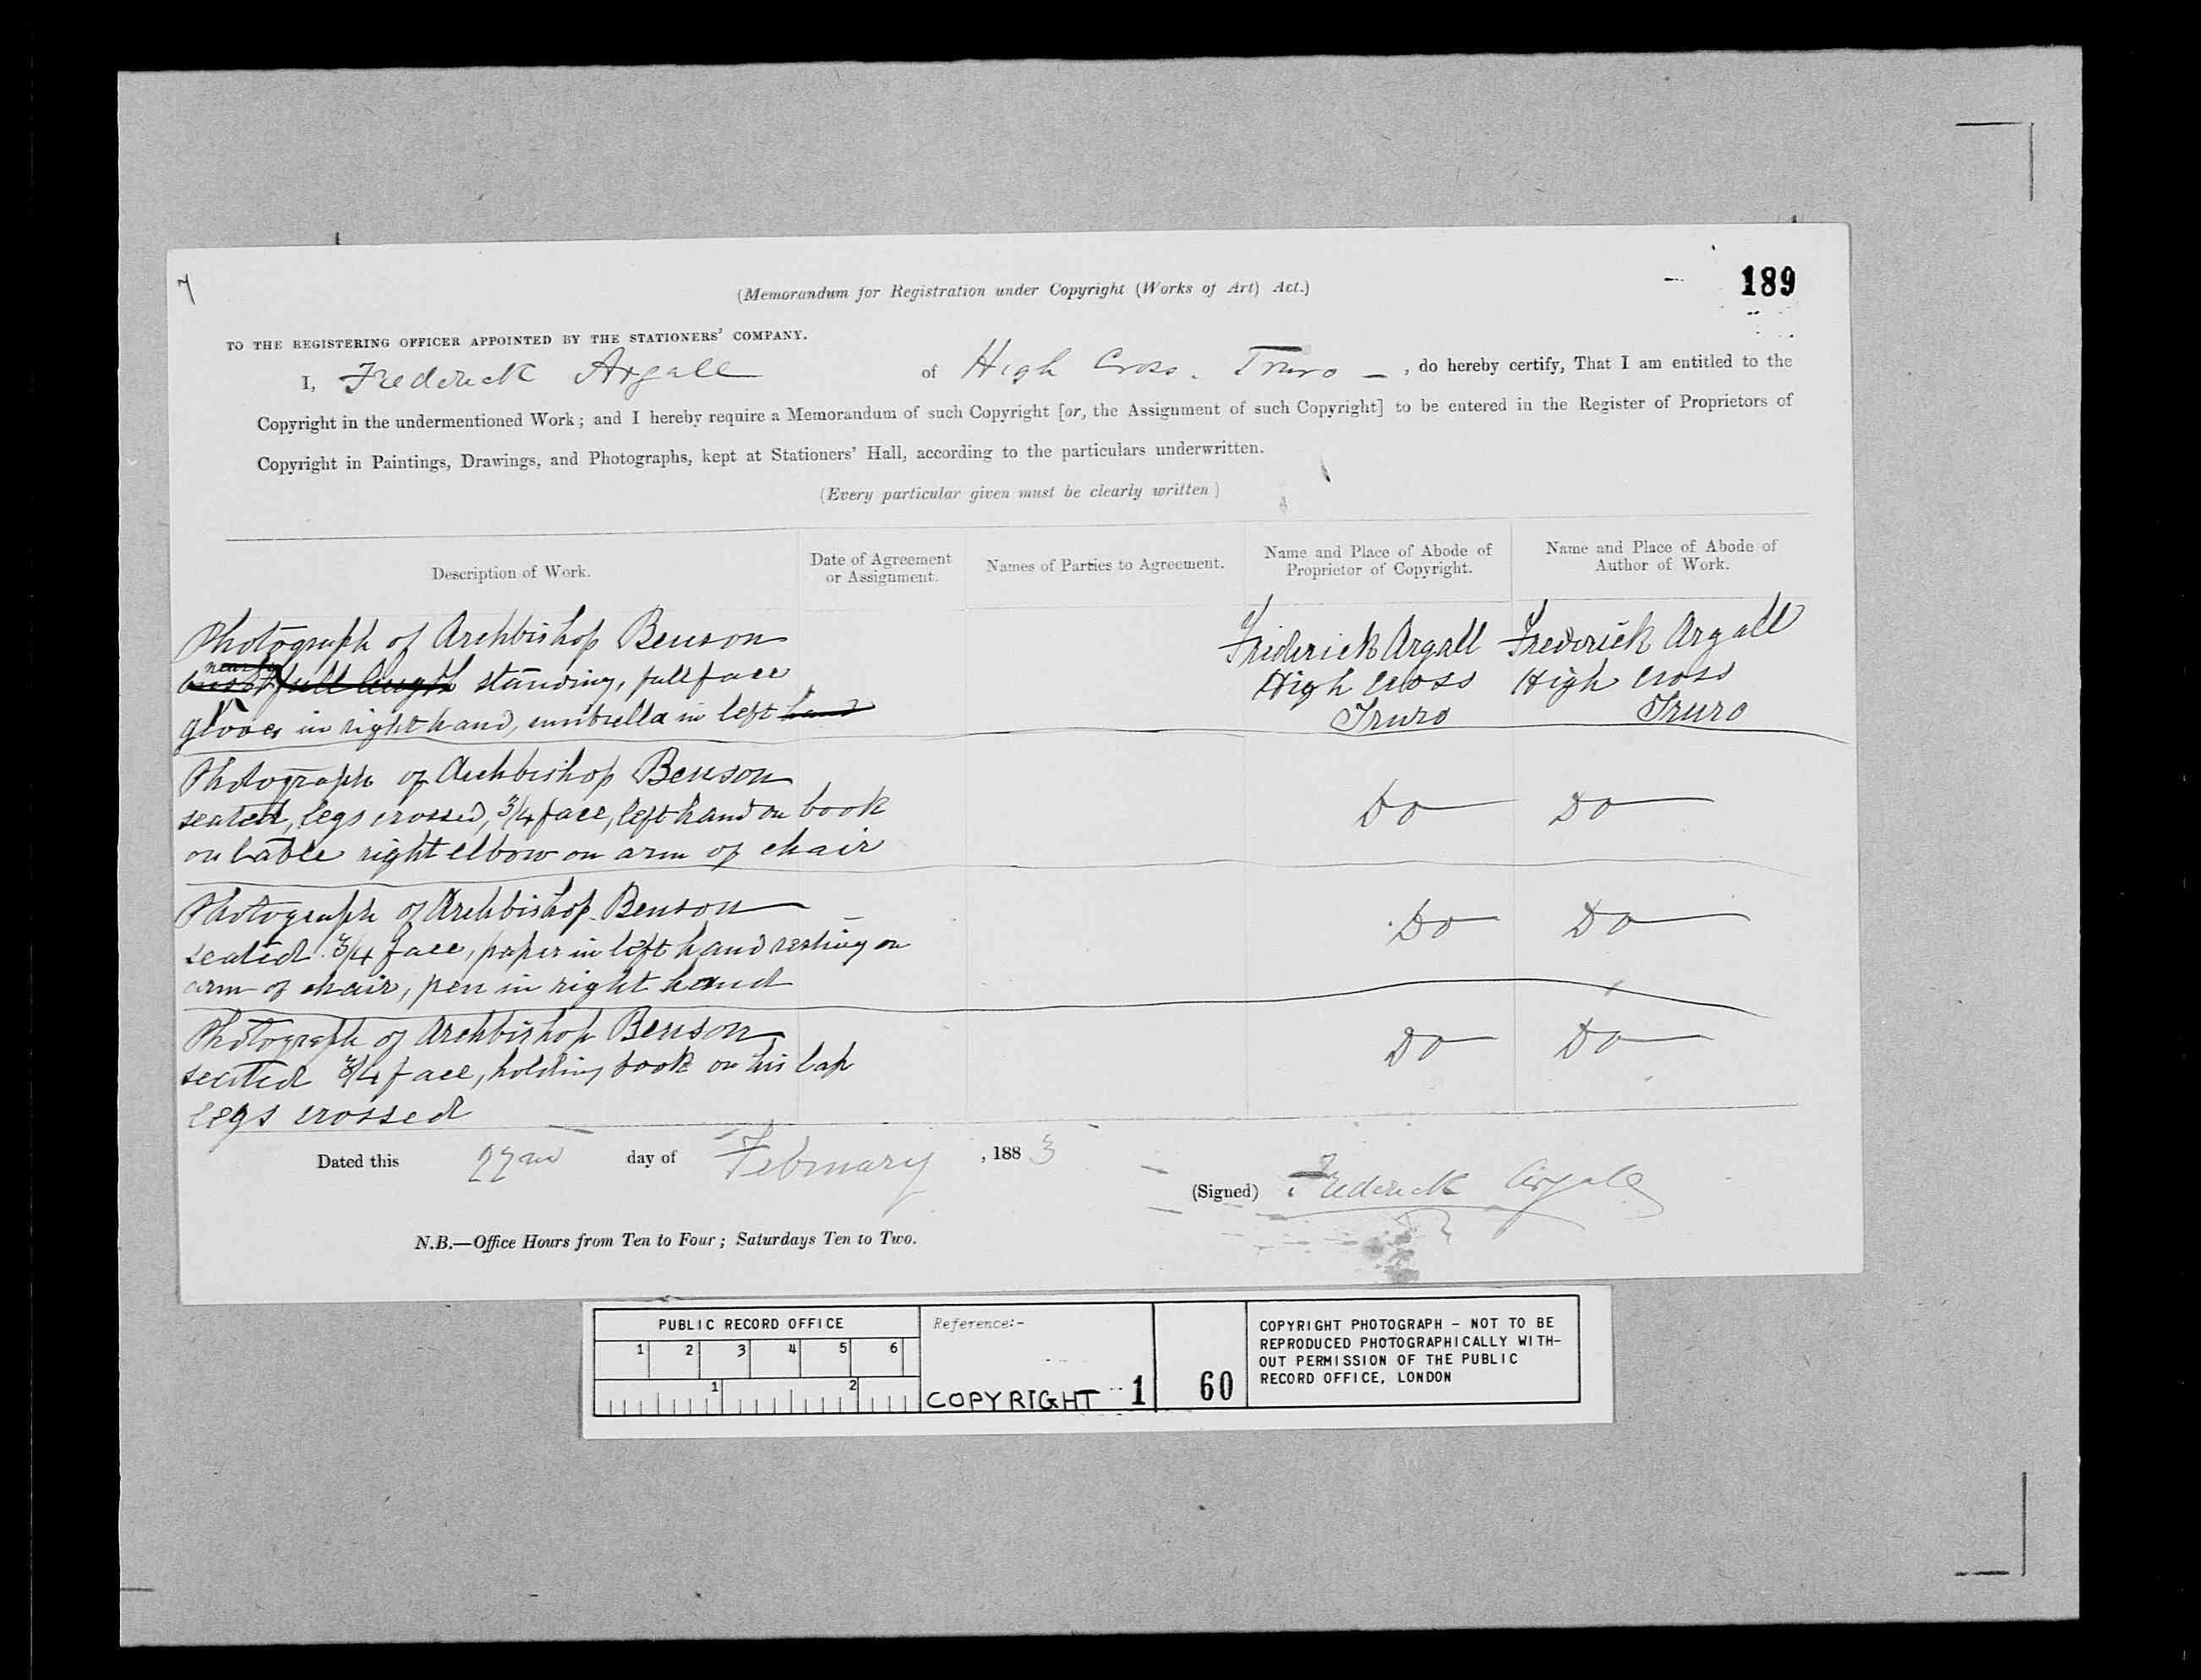 189
(Memorandum for Registration under Copyright (Works of Art) Act.)
TO THE REGISTERING OFFICER APPOINTED BY THE STATIONERS' COMPANY.
I, Frederick Argall of High Cross. Truro — , do hereby certify, That I am entitled to the
Copyright in the undermentioned Work; and I hereby require a Memorandum of such Copyright [or, the Assignment of such Copyright] to be entered in the Register of Proprietors of
Copyright in Paintings, Drawings, and Photographs, kept at Stationers' Hall, according to the particulars underwritten.
(Every particular given must be clearly written)
Description of Work.
Date of Agreement
or Assignment.
Names of Parties to Agreement.
Name and Place of Abode of
Proprietor of Copyright.
Name and Place of Abode of
Author of Work.
Photograph of Archbishop Benson
nearly
full length standing, full face
gloves in right hand, umbrella in left hand
Frederick Argall
High Cross
Truro
Frederick Argall
High Cross
Truro
Photograph of Archbishop Benson
seated, legs crossed, 3/4 face, left hand on book
on table right elbow on arm of chair
Do
Do
Photograph of Archbishop Benson
seated 3/4 face, paper in left hand resting on
arm of chair, pen in right hand
Do
Do
Photograph of Archbishop Benson
seated 3/4 face, holding book on his lap
legs crossed
Do
Do
Dated this day of February , 1883
(Signed) Frederick Argall
N.B.—Office Hours from Ten to Four; Saturdays Ten to Two.
PUBLIC RECORD OFFICE
1 2 3 4 5 6
1 2
Reference:-
COPYRIGHT 1
60
COPYRIGHT PHOTOGRAPH - NOT TO BE
REPRODUCED PHOTOGRAPHICALLY WITH-
OUT PERMISSION OF THE PUBLIC
RECORD OFFICE, LONDON